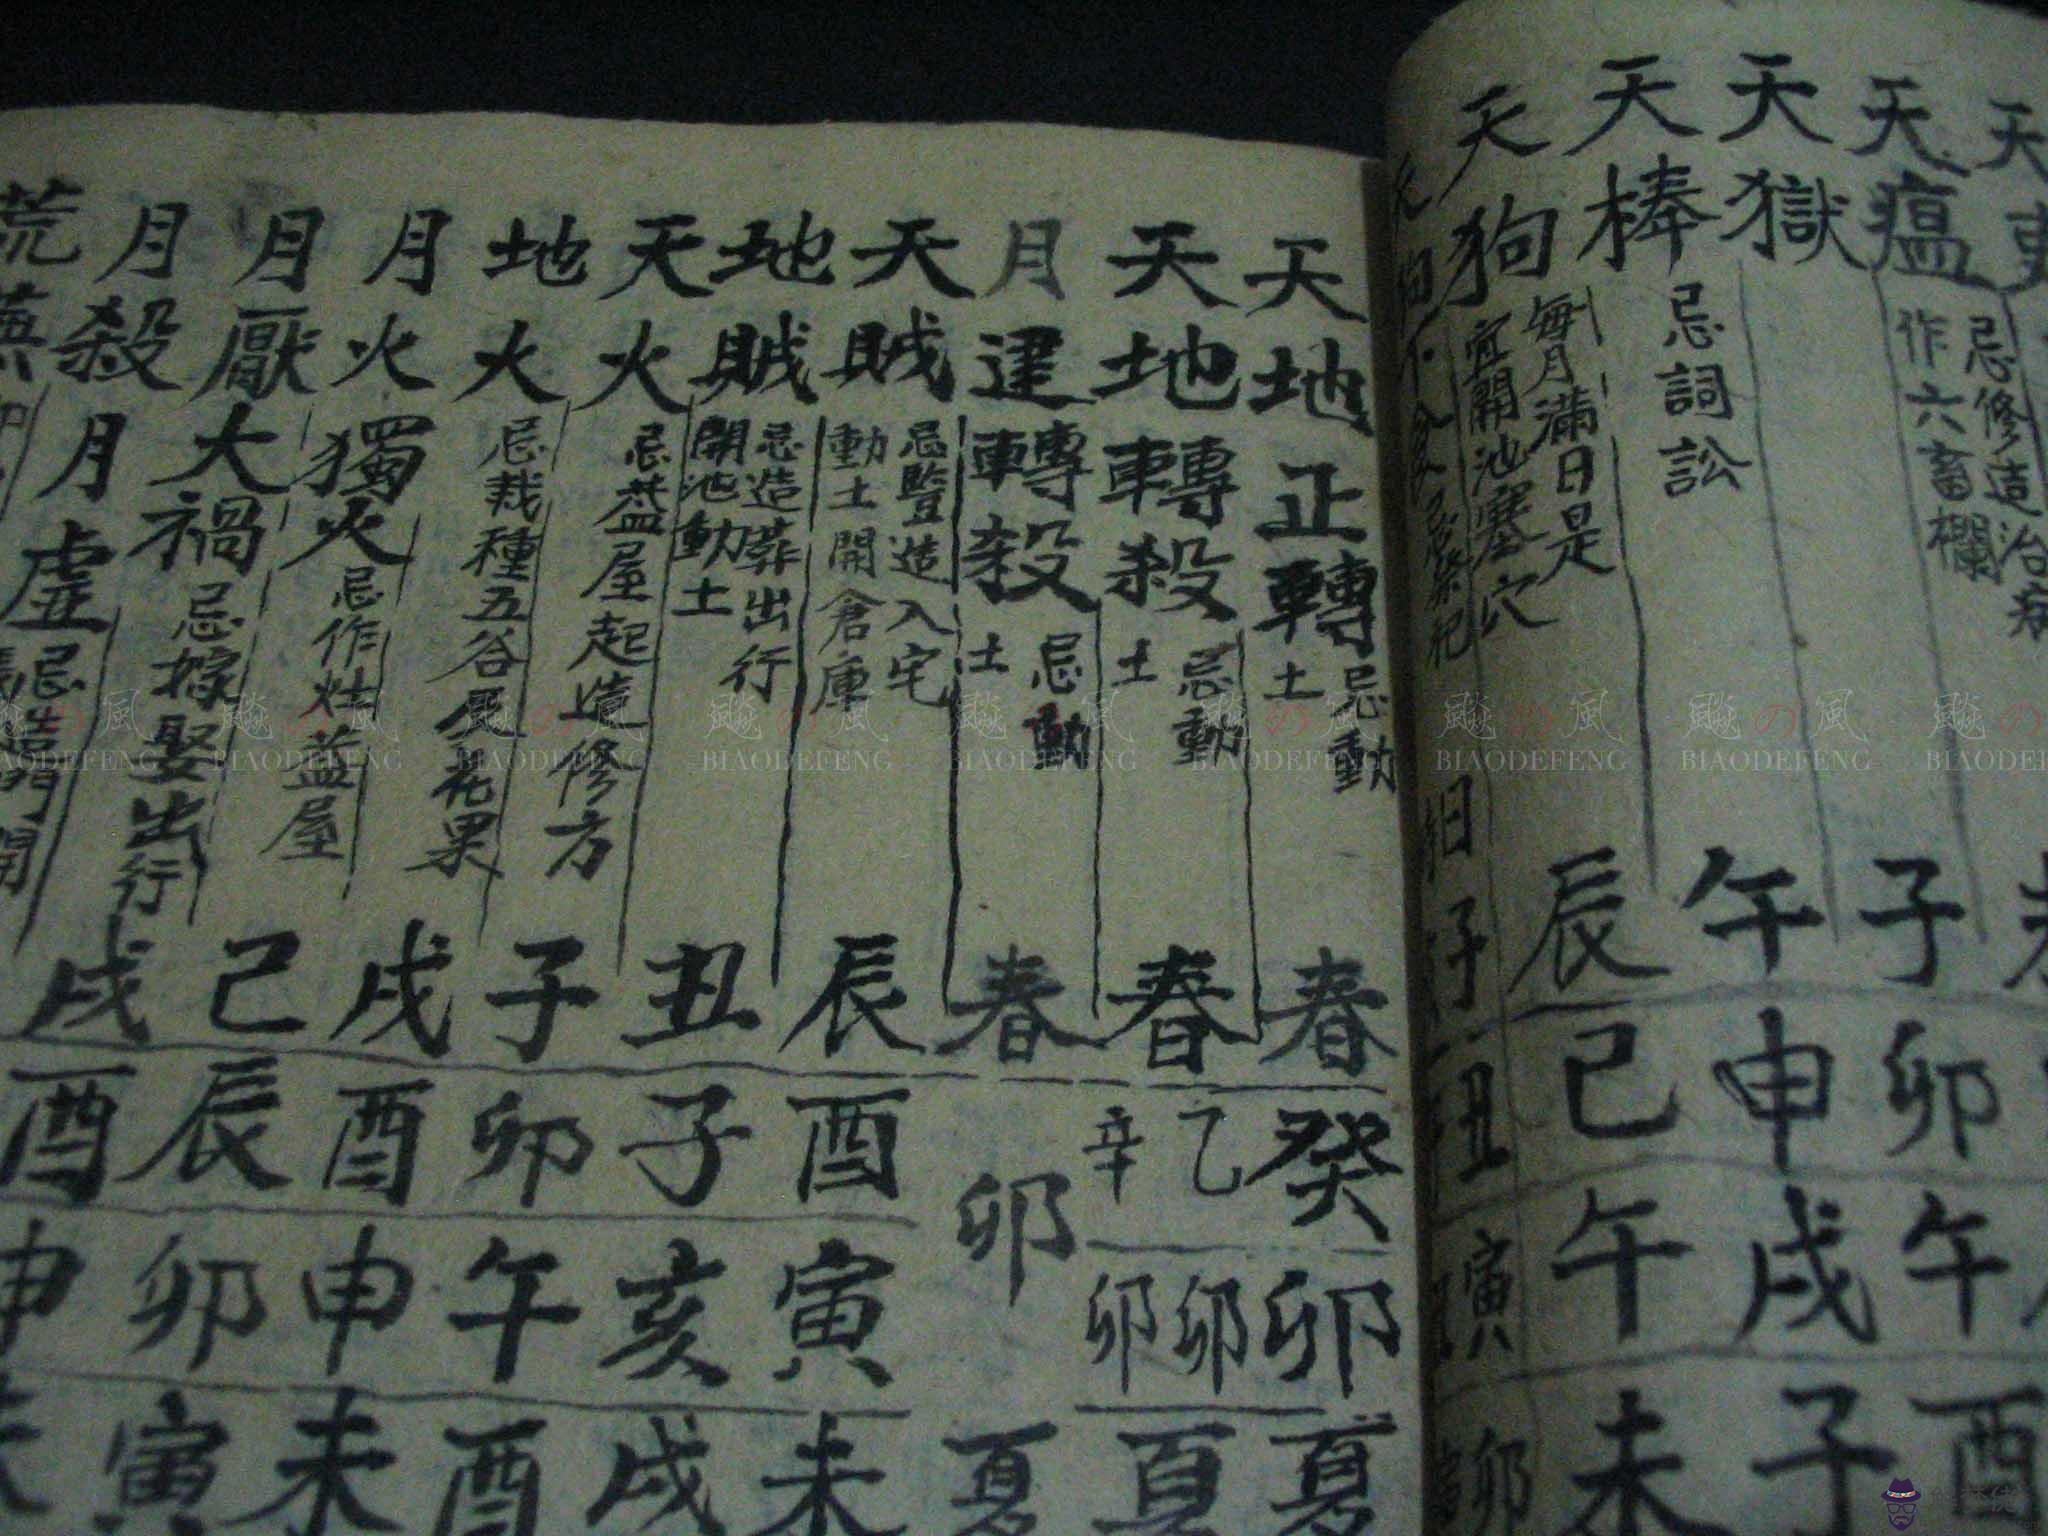 天瘟 忌修造治病作六畜欄 子 卯 午 酉
天獄 午 申 戌 子
天棒 忌詞訟 辰 己 午 未
天狗 每月滿日是宜開池塞穴
子 丑 寅 卯
天地正轉 忌動土 春 癸卯 夏
天地轉殺 忌動土 春 乙卯 辛卯 夏
月建轉殺 忌動土 春 卯 夏
天賊 忌豎造入宅動土開倉庫 辰 酉 寅 未
地賊 忌造葬出行開池動土 丑 子 亥 戌
天火 忌盖屋起造修方 子 卯 午 酉
地火 忌栽種五谷及花果 戌 酉 申 未
月火獨火 忌作灶蓋屋 己 辰 卯 寅
月厭大禍 忌嫁娶出行 戌 酉 申
月殺月虛
荒蕪
BIAODEFENG BIAODEFENG BIAODEFENG BIAODEFENG BIAODEFENG BIAODEFENG BIAODEFENG